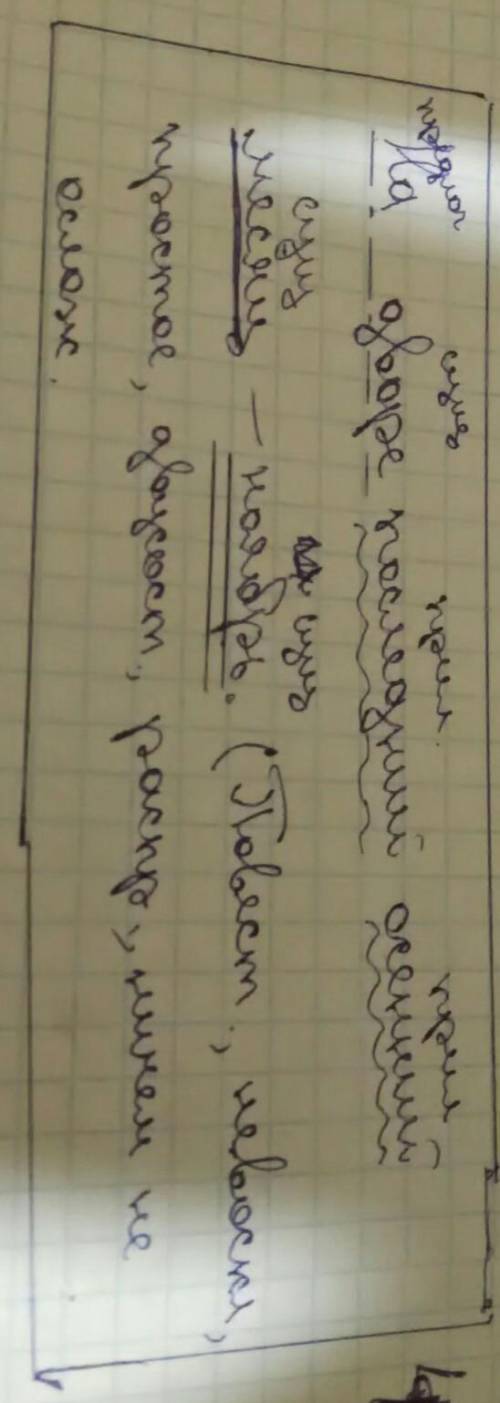 предлог сущ прил. прил
На дворе последний осенний
сущ сущ
месяц – ноябрь. (Повест., невоскл,
простое, двусост, распр, ничем не
ослож.